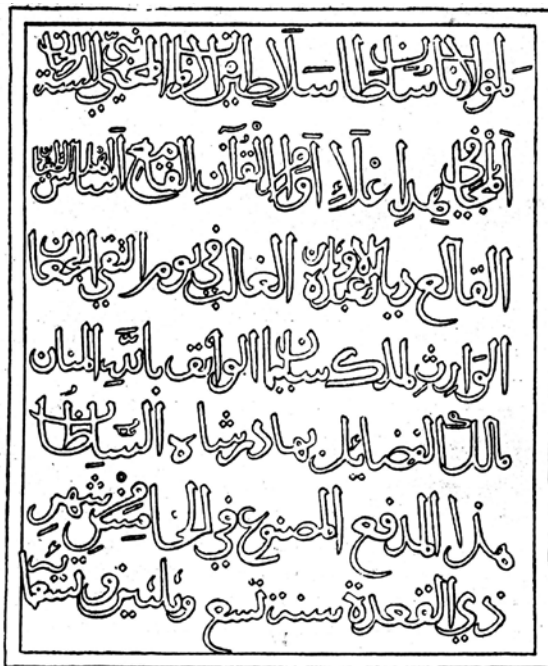 لمولانا سلطان سلاطين الزمان المحيي سنة نبي الرحمان
المجاهد في اعلاء اوامر القرآن القامع اساس
القالع ديار عبدة الاوثان الغالب في يوم التقى الجمعان
الوارث لملك سليمان الواثق بالله المنان
مالك الفضائل بهادرشاه السلطان
هذا المدفع المصنوع في الخامس من شهر
ذي القعدة سنة تسع وثلثين وتسعمائة